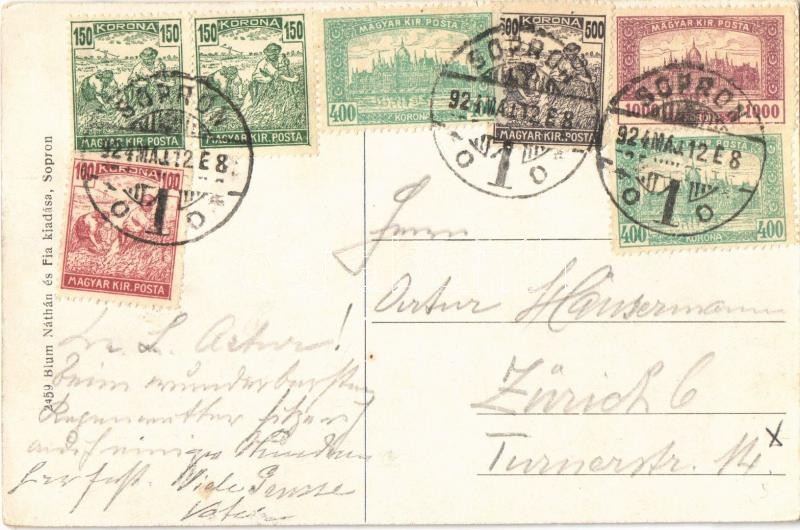 150 KORONA 150
MAGYAR KIR. POSTA
150 KORONA 150
MAGYAR KIR. POSTA
MAGYAR KIR. POSTA
400 KORONA
500 KORONA 500
MAGYAR KIR. POSTA
MAGYAR KIR. POSTA
1000 KORONA 1000
400 KORONA 400
100 KORONA 100
MAGYAR KIR. POSTA
SOPRON
924 MÁJ 12 E 8
1
SOPRON
924 MÁJ 12 E 8
1
SOPRON
924 MÁJ 12 E 8
1
2459 Blum Náthán és Fia kiadása, Sopron
L. Artur!
beim
Regenwetter sitzen
Viele Grüsse
Vater
Herrn
Artur Hausermann
Zürich 6
Turnerstr. 14